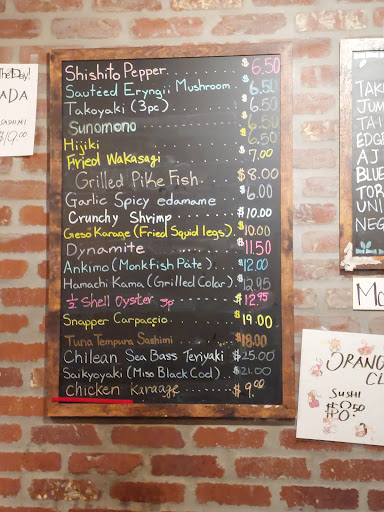 Shishito Pepper $6.50
Sautéed Eryngii Mushroom $6.50
Takoyaki (3pc) $6.50
Sunomono $6.50
Hijiki $6.50
Firied Wakasagi $7.00
Grilled Pike Fish $8.00
Garlic Spicy edamame $6.00
Crunchy Shrimp $10.00
Geso Karage (Fried Squid legs) $10.00
Dynamite $11.50
Ankimo (Monkfish Pâte) $12.00
Hamachi Kama (Grilled Colar) $12.95
½ Shell Oyster 3p $12.95
Snapper Carpaccio $19.00
Tuna Tempura Sashimi $18.00
Chilean Sea Bass Teriyaki $25.00
Saikyoyaki (Miso Black Cod) $21.00
Chicken Karaage $9.00
The Day!
ADA
SASHIMI
TAK
JUM
TAI
EDGE
AJ
BLUE
TOR
UNI
NEG
Mo
ORANG
CL
SUSHI